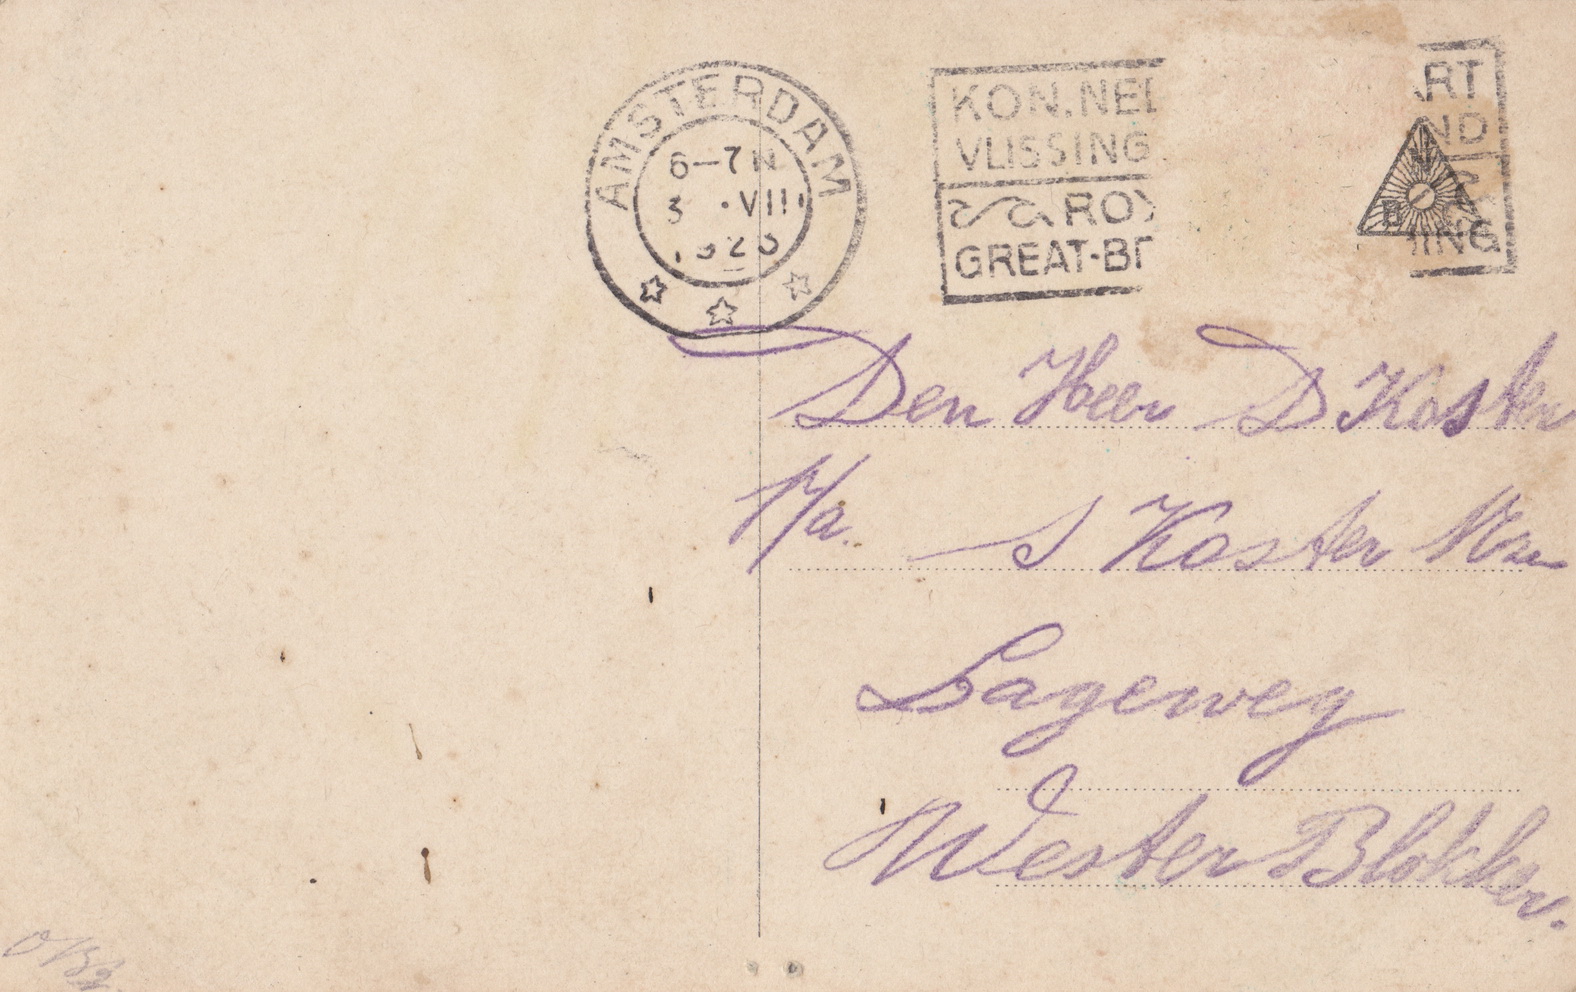 AMSTERDAM
6—7 N
3 .VIII
1925
KON.NED
VLISSING
ROY
GREAT-BR
RT
ND
NG
Den Heer D Koster
P/a. J Koster
Lageweg
Wester Blokker.